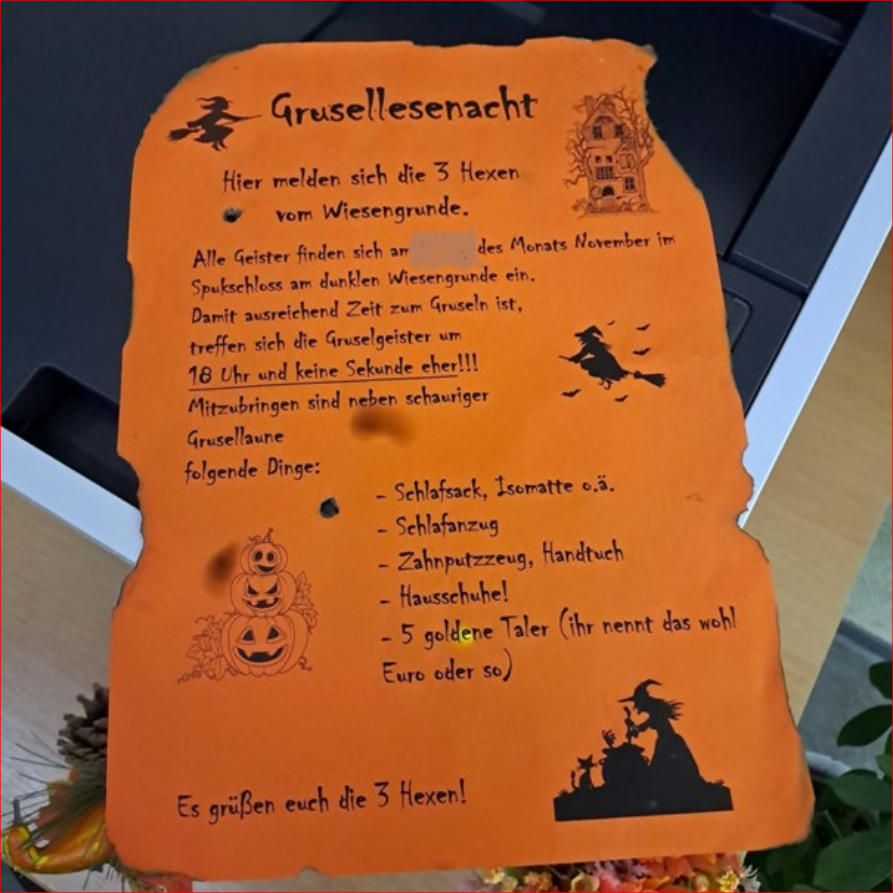 Grusellesenacht
Hier melden sich die 3 Hexen
vom Wiesengrunde.
Alle Geister finden sich am des Monats November im
Spukschloss am dunklen Wiesengrunde ein.
Damit ausreichend Zeit zum Gruseln ist,
treffen sich die Gruselgeister um
18 Uhr und keine Sekunde eher!!!
Mitzubringen sind neben schauriger
Grusellaune
folgende Dinge:
- Schlafsack, Isomatte o.ä.
- Schlafanzug
- Zahnputzzeug, Handtuch
- Hausschuhe!
- 5 goldene Taler (ihr nennt das wohl
Euro oder so)
Es grüßen euch die 3 Hexen!